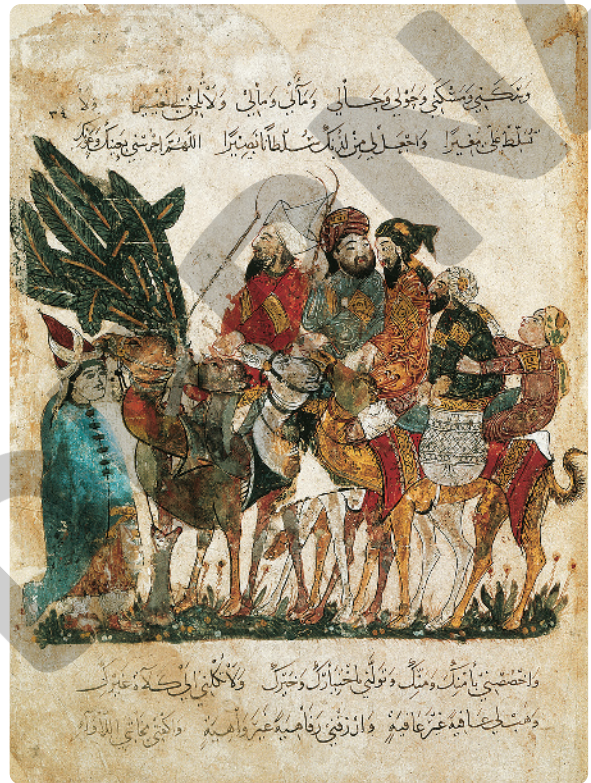 وتركني ومسكني وحولي وحالي ومآلي ومآلي ولا تلحق بي ولا
٣٤
تسلط علي مغيرا واجعل لي من لدنك سلطانا نصيرا اللهم احرسني بعينك وعونك
واخصصني بأمنك ومنك وتولني باختيارك وخيرك ولا تكلني الى كلاءة غيرك
وهب لي عافية غير عافية وارزقني رفاهية غير واهية واكفني مخاشي اللأواء